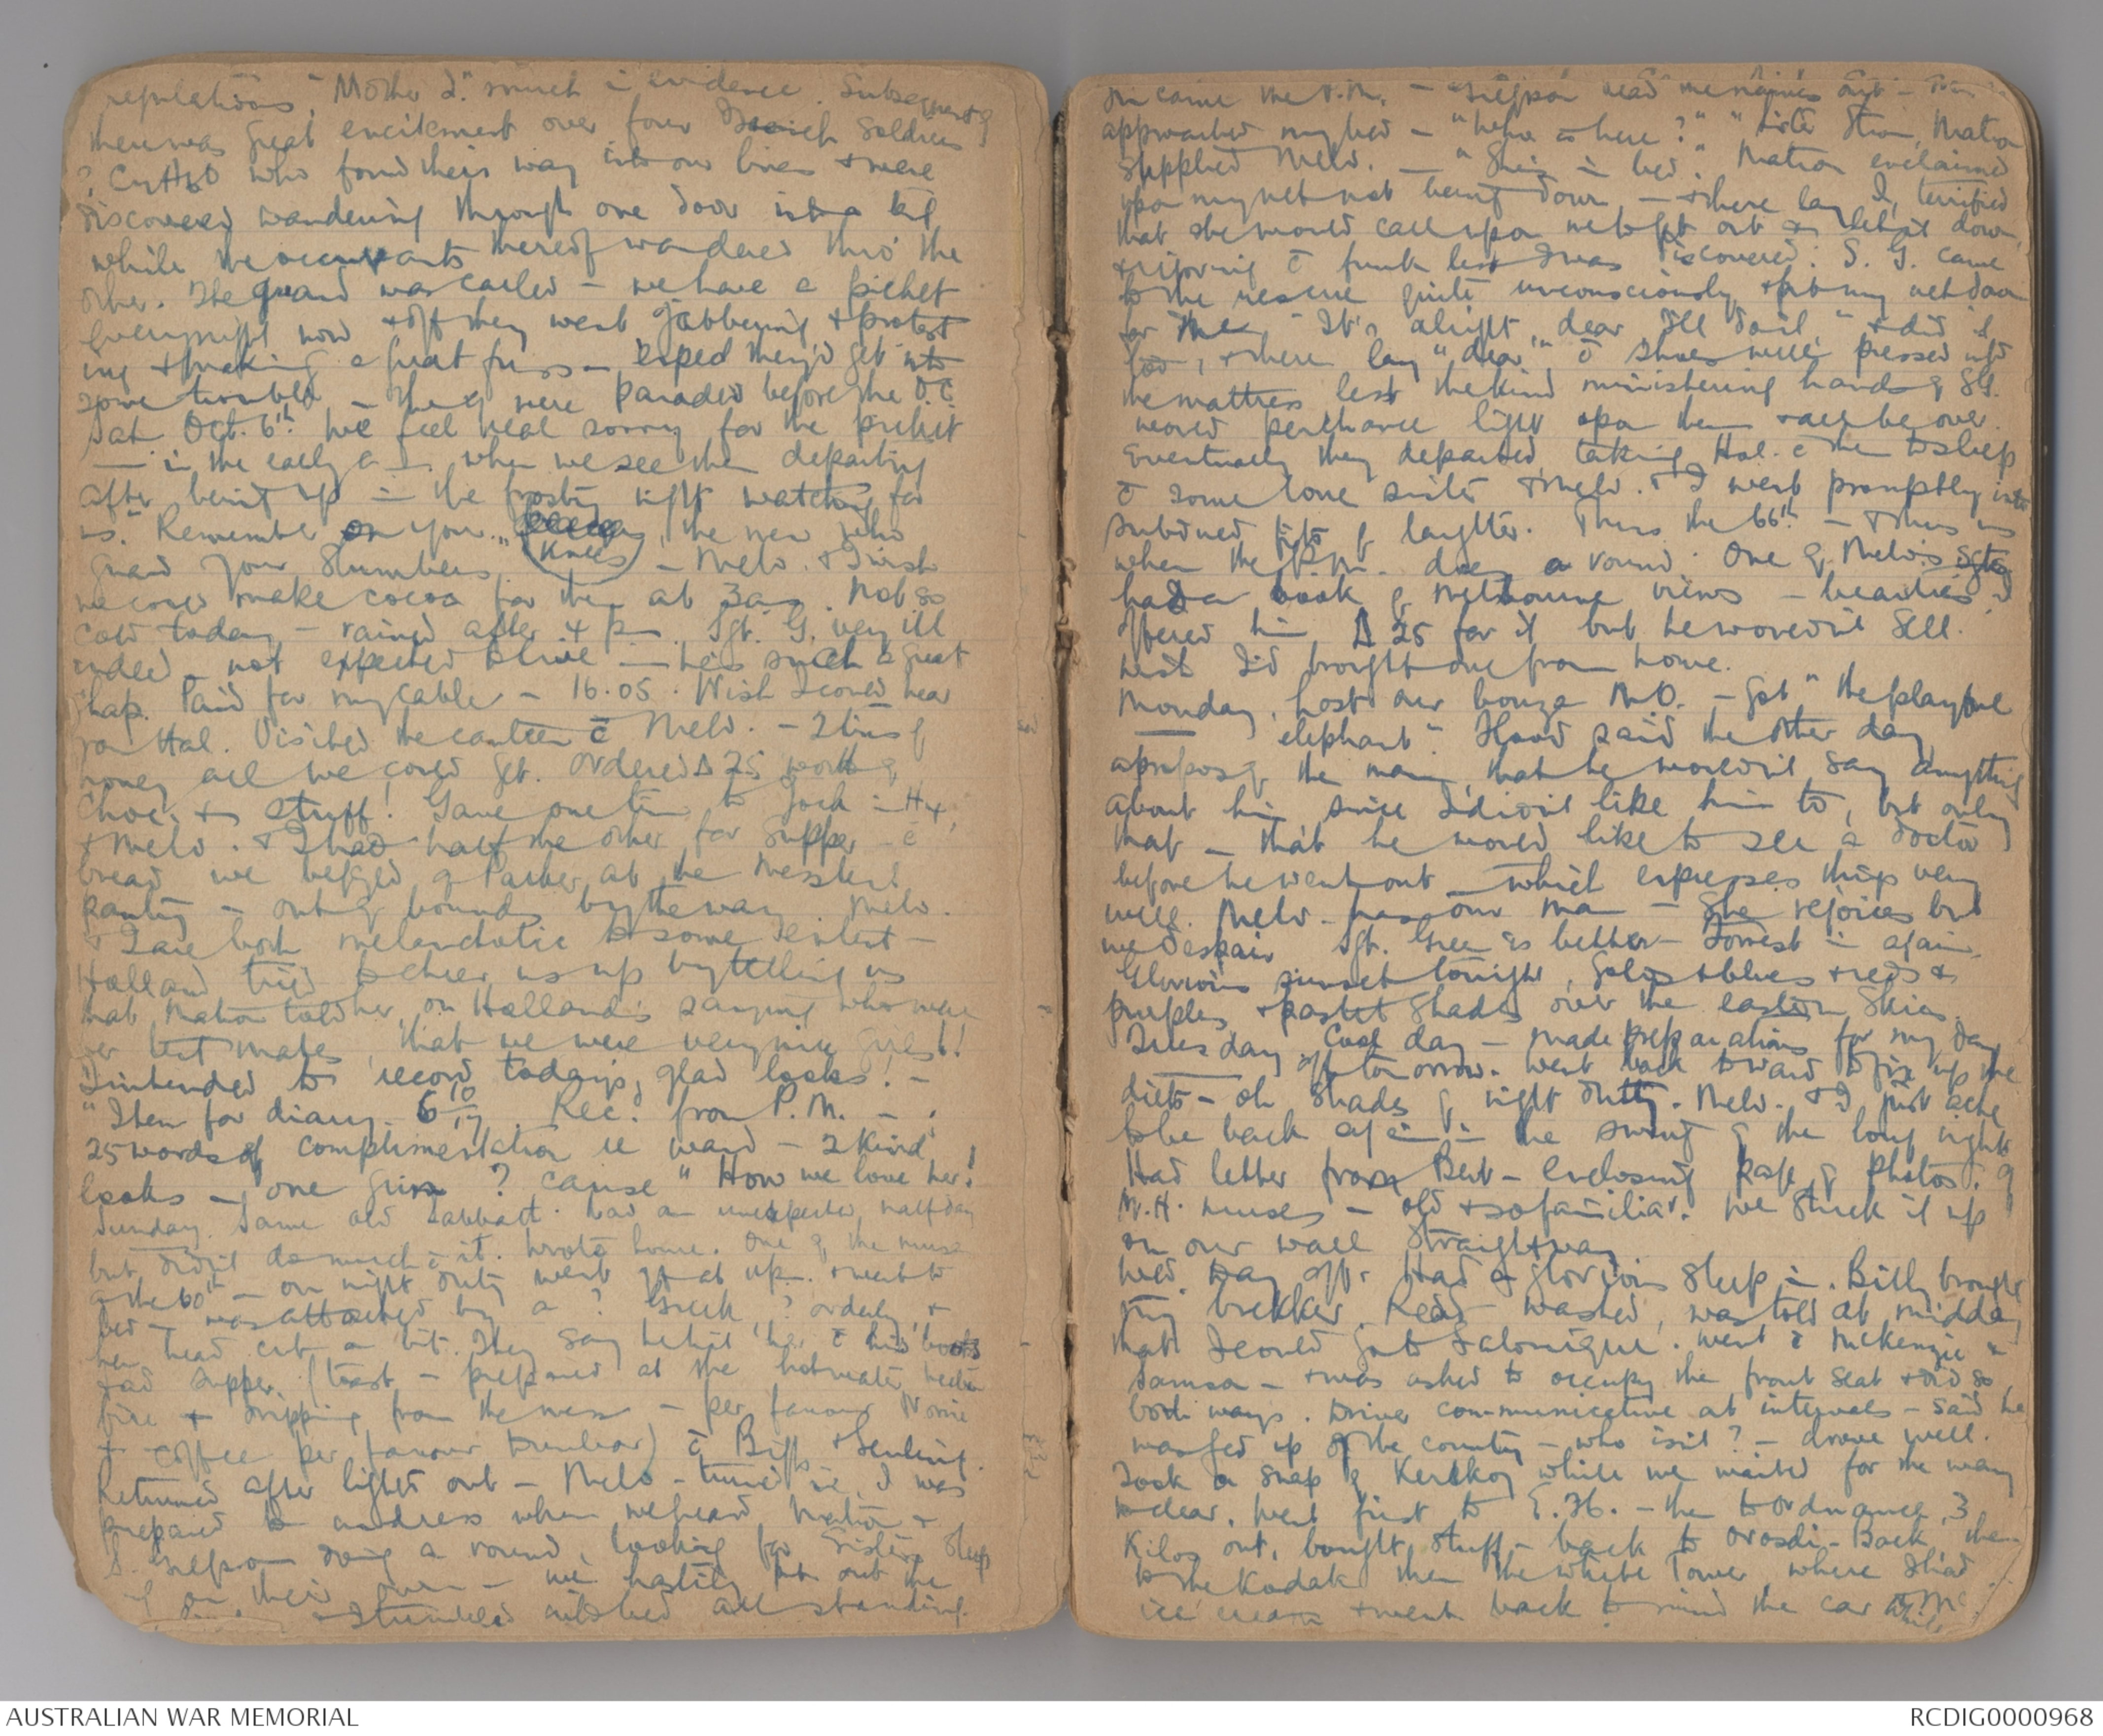 regulations, "Mother 2." much in evidence. Subsequently
there was great excitement over four soldiers
? who found their way into our lines & were
discovered wandering through one door into a
while the occupants thereof wandered thro' the
other. The guard was called – we have a picket
every night now & off they went jabbering & protest
ing & making a great fuss – they'd get into
some trouble – they were paraded before the O.C.
Sat Oct. 6th. We feel real sorry for the picket
– in the early a.m. when we see them departing
after being up in the frosty night watching for
us. "Remember on your knees, the men who
guard your slumbers" – Melv. & I wish
we could make cocoa for them at 3am. Not so
cold today – rained after 4 pm. Sgt. G. very ill
indeed – not expected to live – he's such a great
chap. Paid for my cable – 16.05. Wish I could hear
from Hal. Visited the canteen c̄ Melv. – 2 tins of
honey all we could get. Ordered 25 worth of
choc. & stuff! Gave one tin to Jock in H4,
& Melv. & I had half the other for supper – c̄
bread we begged of Parker at the Mess
pantry – out of bounds by the way. Melv.
& I are both melancholic to some extent –
Holland tried to cheer us up by telling us
that Matron told her, on Holland's saying who were
her tent mates, that we were very nice girls!!
I intended to record today's glad looks! –
"Item for diary. 6 10/17. Rec. from P.M. –
25 words of complimentation re ward – 2 kind
looks – one grin ? cause" How we love her!
Sunday. Same old Sabbath. Had an unexpected half day
but didn't do much c̄ it. Wrote home. One of the nurses
of the 60th – on night duty went off at & went to
bed – was attacked by a ? Greek ? orderly, &
her head cut a bit. They say he hit her c̄ his boots
Had supper (toast – prepared at the hot water
fire & dripping from the mess – per favour Norrie
& coffee per favour Dunbar) c̄ Biffs
Returned after lights out – Melv – turned in, I was
prepared to undress when we heard Matron &
S. doing a round, looking for Sisters
on their own – we hastily put out the
– I tumbled into bed all standing.
In came the P.M. – read the names out –
approached my bed – "Who is here?" "Sister Strom, Matron
supplied Melv. – "She's in bed". Matron exclaimed
upon my net not being down – & there lay I, terrified
that she would call upon me to get out & let it down,
& c̄ funk lest I was discovered. S. G. came
to the rescue quite unconsciously & put my net down
for me. "It's alright, dear I'll do it" & did it
too, & there lay "dear" c̄ shoes well pressed into
the mattress lest the kind ministering hands of SG.
would perchance light upon them & all be over.
Eventually they departed, taking Hol. c̄ them to sleep
c̄ some lone sister & Melv. & I went promptly into
subdued fits of laughter. Thus the 66th – & thus us
when the P.M. does a round. One of Melv's Sgts
had a book of Melbourne views – beauties. I
offered him 25 for it but he wouldn't sell.
Wish I'd brought one from home.
Monday, lost our bonza M.O. – got "the playful
elephant". Hood said the other day
apropos of the man, that he wouldn't say anything
about him, since I didn't like him to, but only
that – that he would like to see a doctor
before he went out – which expresses things very
well. Melv. has our man – She rejoices but
we despair. Sgt. Green is better – Forrest in again.
Glorious sunset tonight, golds & blues & reds &
purples & pastel shades over the eastern skies.
Tuesday. Cool day – made preparations for my day
off tomorrow. Went back to ward to fix up the
diets – oh shades of night duty. Melv. & I just ache
to be back again in the swing of the long nights
Had letter from Bert – enclosing page of photos of
M.H. nurses – old & so familiar. We stuck it up
on our wall straightway.
Wed. Day off. Had a glorious sleep in. Billy brought
my brekker. Read – washed, was told at midday
that I could go to Salonique. Went c̄ McKenzie &
– & was asked to occupy the front seat & did so
both ways. Driver communicative at intervals – said he
was fed up of the country – who isn't? – drove well.
Took a snap of while we waited for the way
to clear. Went first to E.H. – then to Ordnance, 3
Kilos out, bought stuff – back to Orosdi-Back, then
to the Kodak then the White Tower where I had
ice cream & went back to mind the car while Mc
AUSTRALIAN WAR MEMORIAL
RCDIG0000968